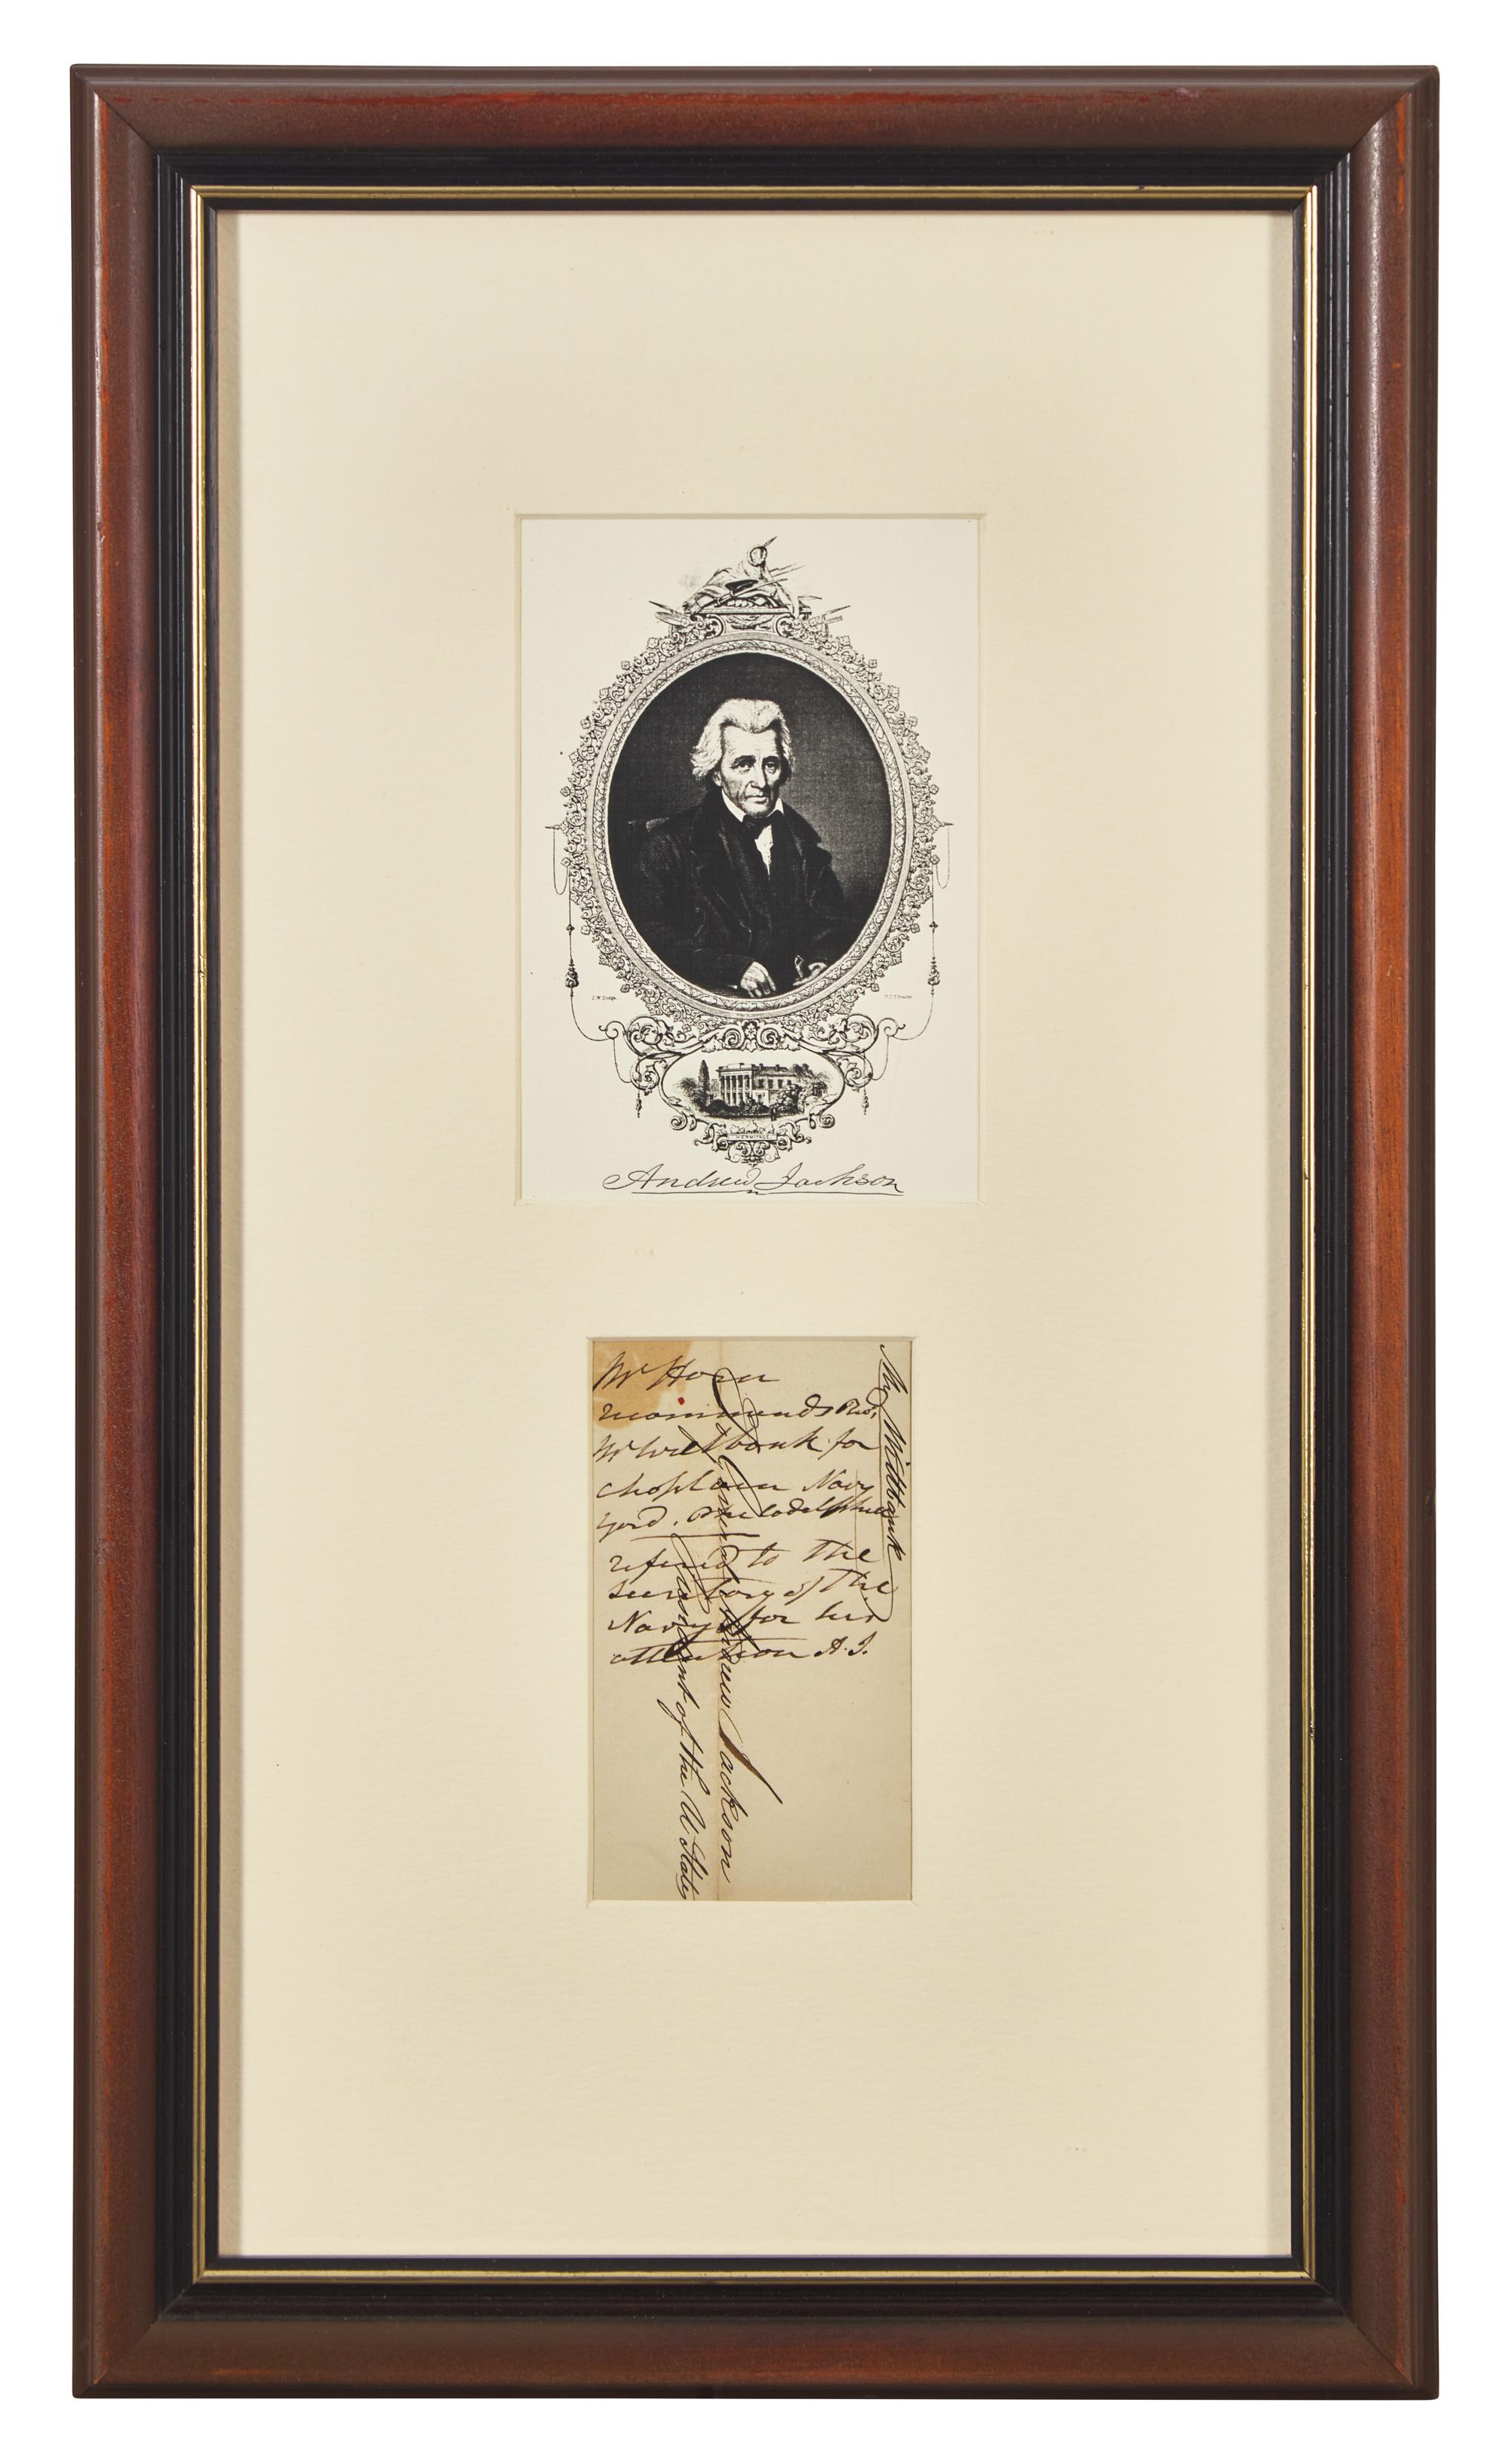 J.W. Dodge.
HERMITAGE
Andrew Jackson
Mr Horn
recommends Rev,
Mr Wiltbank for
chaplain Navy
yard. Philadelphia
refered to the
Secretary of the
Navy for his
attention A.J.
Mr Wiltbank
General Andrew Jackson
President of the U States